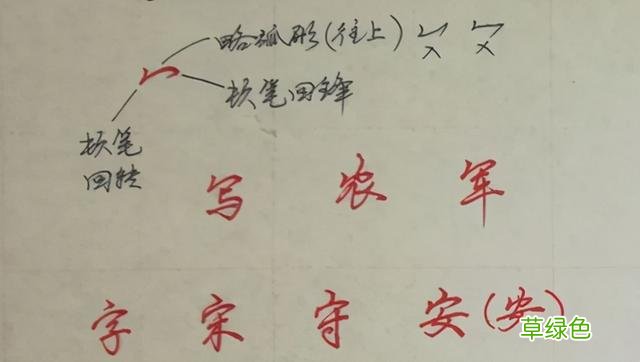 略弧形(往上)
顿笔回锋
顿笔
回转
写 农 军
字 宋 守 安(安)
草绿色